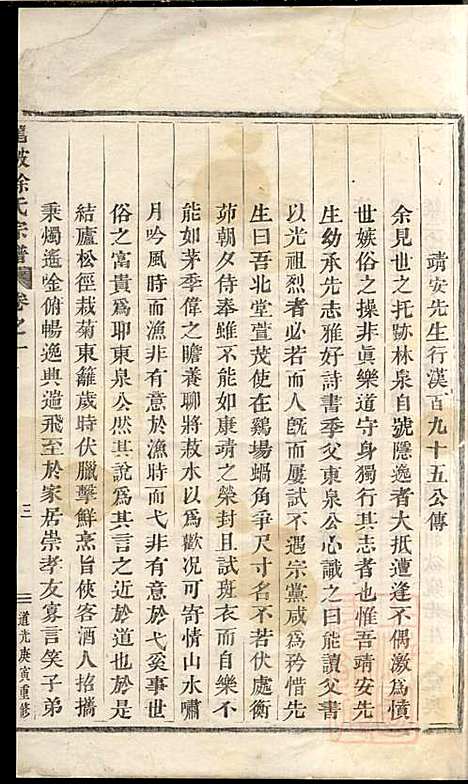 靖安先生行漢百九十五公傳
余見世之托跡林泉自號隱逸者大抵遭逢不偶激爲憤
世嫉俗之操非眞樂道守身獨行其志者也惟吾靖安先
生幼承先志雅好詩書季父東泉公心識之曰能讀父書
以光祖烈者必此人旣而屢試不遇宗黨咸爲矜惜先
生曰吾北堂萱茂使在鷄場蝸角爭尺寸名不若伏處衡
茆朝夕侍奉雖不能如康靖之榮封且試斑衣而自樂不
能如茅季偉之贍養聊將菽水以爲歡况可寄情山水嘯
月吟風時而漁非有意於漁時而弋非有意於弋奚事世
俗之富貴爲耶東泉公然其說爲其言之近於道也於是
結廬松徑栽菊東籬歲時伏臘擊鮮烹旨俠客酒人招攜
乘燭遙唫俯暢逸興遄飛至於家居崇孝友寡言笑子弟
徐氏宗譜 卷之一 三 道光庚寅重修